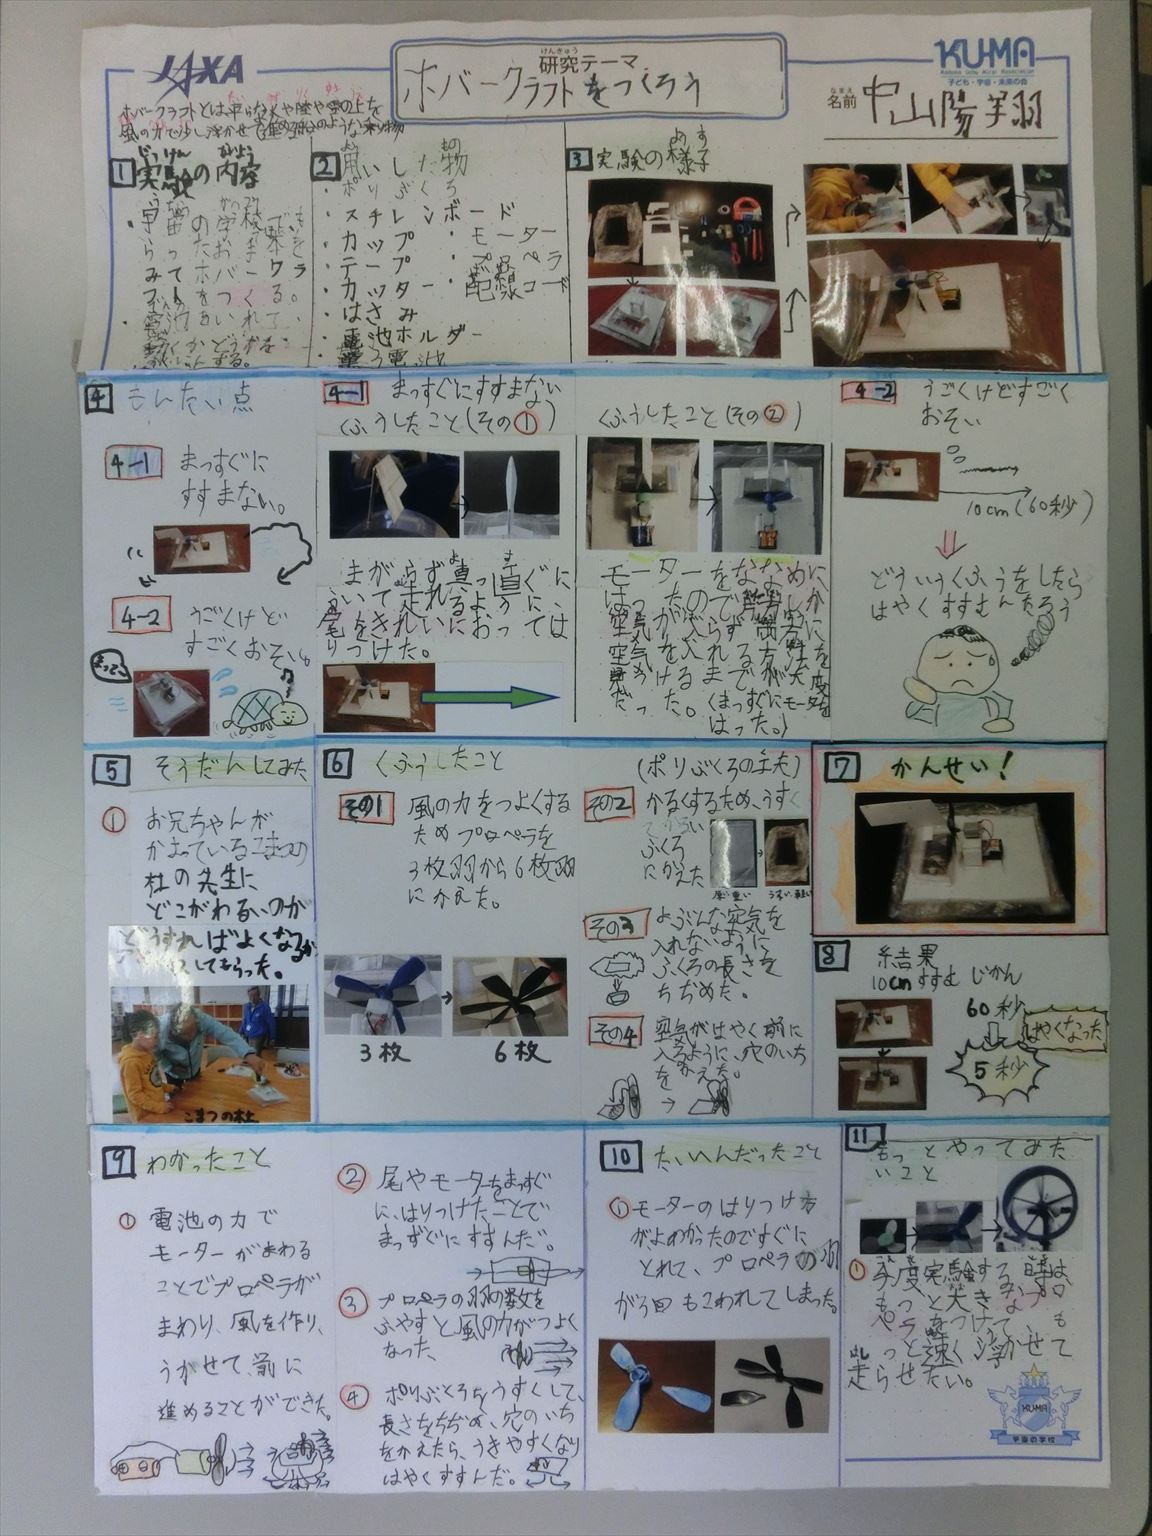 JAXA
けんきゅう
研究テーマ
ホバークラフトをつくろう
KU-MA
子ども・宇宙・未来の会
なまえ
名前 中山陽翔
ホバークラフトとは平らな水や陸や雪の上を
風の力で少し浮かせて進める
のような乗り物
1 実験の内容
宇宙の学校で
ホバークラ
フトをつくる。
電池をいれて、
動くかどうかを
する。
2 用いした物
ポリぶくろ
・スチレンボード
・カップ ・モーター
・テープ ・プロペラ
・カッター ・配線コード
・はさみ
・電池ホルダー
3 実験の様子
4 もんだい点
4-1 まっすぐに
すすまない。
4-2 うごくけど
すごくおそい。
4-1 まっすぐにすすまない
くふうしたこと(その①)
まがらず真っ直ぐに、
走れるように、
尾をきれいにおっては
りつけた。
くふうしたこと(その②)
モーターをななめに
はったので
(まっすぐにモーターを
はった。)
4-2 うごくけどすごく
おそい
10cm(60秒)
どういうくふうをしたら
はやくすすむんだろう
5 そうだんしてみた
① お兄ちゃんが
かよっているこまつの
杜の先生に
どこがわるいのか
どうすればよくなるか
してもらった。
こまつの杜
6 くふうしたこと
その1 風の力をつよくする
ためプロペラを
3枚羽から6枚羽
にかえた。
3枚 6枚
(ポリぶくろの工夫)
その2 かるくするため、うすく
てかるい
ふくろ
にかえた
厚い重い うすい軽い
その3 よぶんな空気を
入れないように
ふくろの長さを
ちぢめた。
その4 空気がはやく前に
入るように、穴のいち
をかえた。
7 かんせい!
8 結果
10cmすすむじかん
60秒
はやくなった
5秒
9 わかったこと
① 電池の力で
モーターがまわる
ことでプロペラが
まわり、風を作り、
うかせて、前に
進めることができた。
② 尾やモーターをまっすぐ
に、はりつけたことで
まっすぐにすすんだ。
③ プロペラの羽の数を
ふやすと風の力がつよく
なった。
④ ポリぶくろをうすくして、
長さをちぢめ、穴のいち
をかえたら、うきやすくなり
はやくすすんだ。
10 たいへんだったこと
① モーターのはりつけ方
がよわかったのですぐに
とれて、プロペラの羽
が3回もこわれてしまった。
11 もっとやってみた
いこと
① 今度実験する時は、
もっと大きなプロ
ペラをつけて、も
っと速く浮かせて
走らせたい。
KU-MA
宇宙の学校